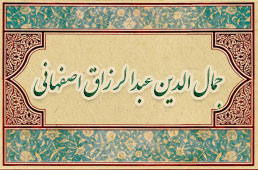 جمال الدین عبدالرزاق اصفهانی